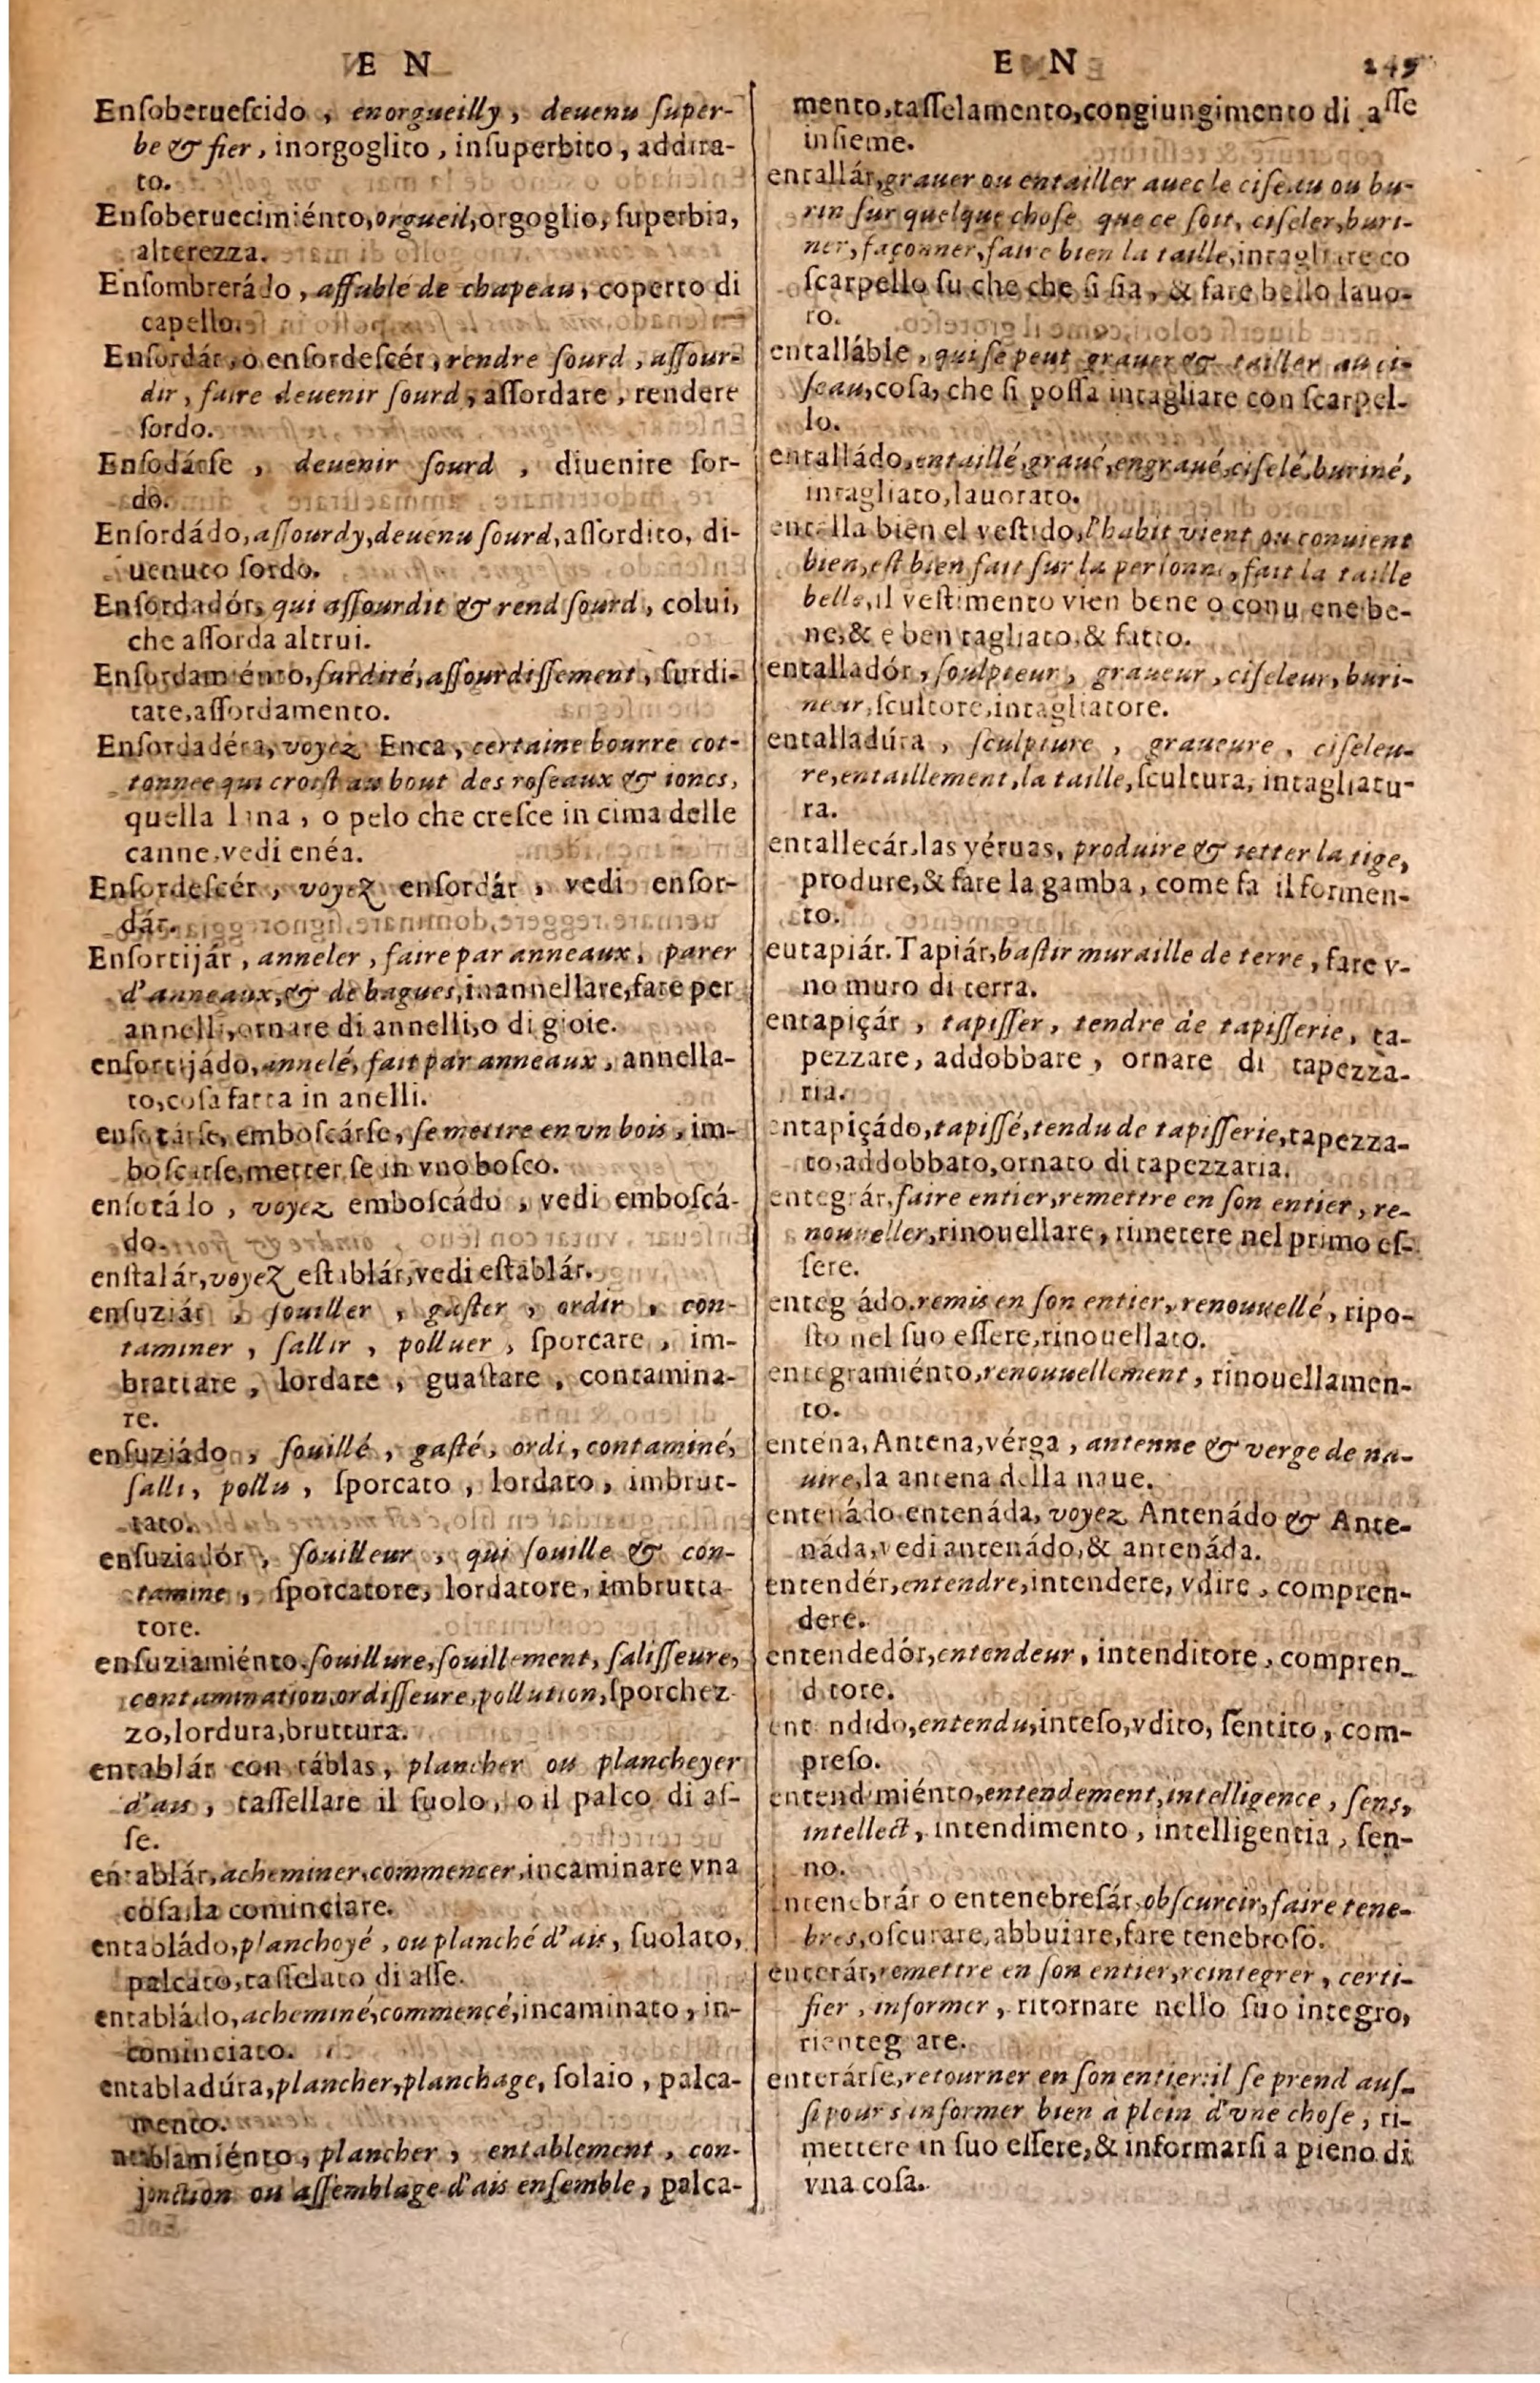 E N
Enſoberueſcido, enorgueilly, deuenu ſuper-
be & fier, inorgoglito, inſuperbito, addira-
to.
Enſoberuecimiénto, orgueil, orgoglio, ſuperbia,
alterezza.
Enſombrerádo, affublé de chapeau, coperto di
capello.
Enſordár, o enſordeſcér, rendre ſourd, aſſour-
dir, faire deuenir ſourd, aſſordare, rendere
ſordo.
Enſodárſe, deuenir ſourd, diuenire ſor-
do.
Enſordádo, aſſourdy, deuenu ſourd, aſſordito, di-
uenuto ſordo.
Enſordadór, qui aſſourdit & rend ſourd, colui,
che aſſorda altrui.
Enſordam énto, ſurdité, aſſourdiſſement, ſurdi-
tate, aſſordamento.
Enſordadéra, voyez Enca, certaine bourre cot-
tonnee qui croiſt au bout des roſeaux & ioncs,
quella lana, o pelo che creſce in cima delle
canne, vedi enéa.
Enſordeſcér, voyez enſordár, vedi enſor-
dár.
Enſortijár, anneler, faire par anneaux, parer
d'anneaux, & de bagues, inannellare, fare per
annelli, ornare di annelli, o di gioie.
enſortijádo, annelé, fait par anneaux, annella-
to, coſa fatta in anelli.
enſotarſe, emboſcárſe, ſe mettre en vn bois, im-
boſcarſe, metterſe in vno boſco.
enſotádo, voyez emboſcádo, vedi emboſcá-
do.
enſtalár, voyez eſtablár, vedi eſtablár.
enſuziár, ſouiller, gaſter, ordir, con-
taminer, ſallir, polluer, ſporcare, im-
brattare, lordare, guaſtare, contamina-
re.
enſuziádo, ſouillé, gaſté, ordi, contaminé,
ſalli, pollu, ſporcato, lordato, imbrut-
tato.
enſuziadór, ſouilleur, qui ſouille & con-
tamine, ſporcatore, lordatore, imbrutta
tore.
enſuziamiénto, ſouillure, ſouillement, ſaliſſeure,
contamination, ordiſſeure, pollution, ſporchez
zo, lordura, bruttura.
entablár con táblas, plancher ou plancheyer
d'ais, taſſellare il ſuolo, o il palco di aſ-
ſe.
entablár, acheminer, commencer, incaminare vna
coſa, la cominciare.
entabládo, planchoyé, ou planché d'ais, ſuolato,
palcato, taſſelato di aſſe.
entabládo, acheminé, commencé, incaminato, in-
cominciato.
entabladúra, plancher, planchage, ſolaio, palca-
mento.
blamiénto, plancher, entablement, con-
jonction ou aſſemblage d'ais enſemble, palca-
E N 249
mento, taſſelamento, congiungimento di aſſe
inſieme.
entallár, grauer ou entailler auec le ciſeau ou bu-
rin ſur quelque choſe que ce ſoit, ciſeler, buri-
ner, façonner, faire bien la taille, intagliare co
ſcarpello ſu che che ſi ſia, & fare bello lauo-
ro.
entalláble, qui ſe peut grauer & tailler au ci-
ſeau, coſa, che ſi poſſa intagliare con ſcarpel-
lo.
entalládo, entaillé, graué, engraué, ciſelé, buriné,
intagliato, lauorato.
entalla bien el veſtido, l'habit vient ou conuient
bien, eſt bien fait ſur la perſonne, fait la taille
belle, il veſtimento vien bene o conu ene be-
ne, & e ben tagliato, & fatto.
entalladór, ſoulpteur, graueur, ciſeleur, buri-
neur, ſcultore, intagliatore.
entalladúra, ſculpture, graueure, ciſeleu-
re, entaillement, la taille, ſcultura, intagliatu-
ra.
entallecár las yéruas, produire & ietter la tige,
produre, & fare la gamba, come fa il formen-
to.
eutapiár. Tapiár, baſtir muraille de terre, fare v-
no muro di terra.
entapiçár, tapiſſer, tendre de tapiſſerie, ta-
pezzare, addobbare, ornare di tapezza-
ria.
entapiçádo, tapiſſé, tendu de tapiſſerie, tapezza-
to, addobbato, ornato di tapezzaria.
entegrár, faire entier, remettre en ſon entier, re-
nouueller, rinouellare, rimetere nel primo eſ-
ſere.
enteg ádo, remis en ſon entier, renouuellé, ripo-
ſto nel ſuo eſſere, rinouellato.
entegramiénto, renouuellement, rinouellamen-
to.
entena, Antena, vérga, antenne & verge de na-
uire, la antena della naue.
entenádo entenáda, voyez Antenádo & Ante-
náda, vedi antenádo, & antenáda.
entendér, entendre, intendere, vdire, compren-
dere.
entendedór, entendeur, intenditore, compren_
d tore.
ent ndido, entendu, inteſo, vdito, ſentito, com-
preſo.
entend miénto, entendement, intelligence, ſens,
intellect, intendimento, intelligentia, ſen-
no.
entenebrár o entenebreſár, obſcurcir, faire tene-
bres, oſcurare, abbuiare, fare tenebroſo.
enterár, remettre en ſon entier, reintegrer, certi-
fier, informer, ritornare nello ſuo integro,
rienteg are.
enterárſe, retourner en ſon entier: il ſe prend auſ-
ſi pour s'informer bien à plein d'vne choſe, ri-
mettere in ſuo eſſere, & informarſi a pieno di
vna coſa.